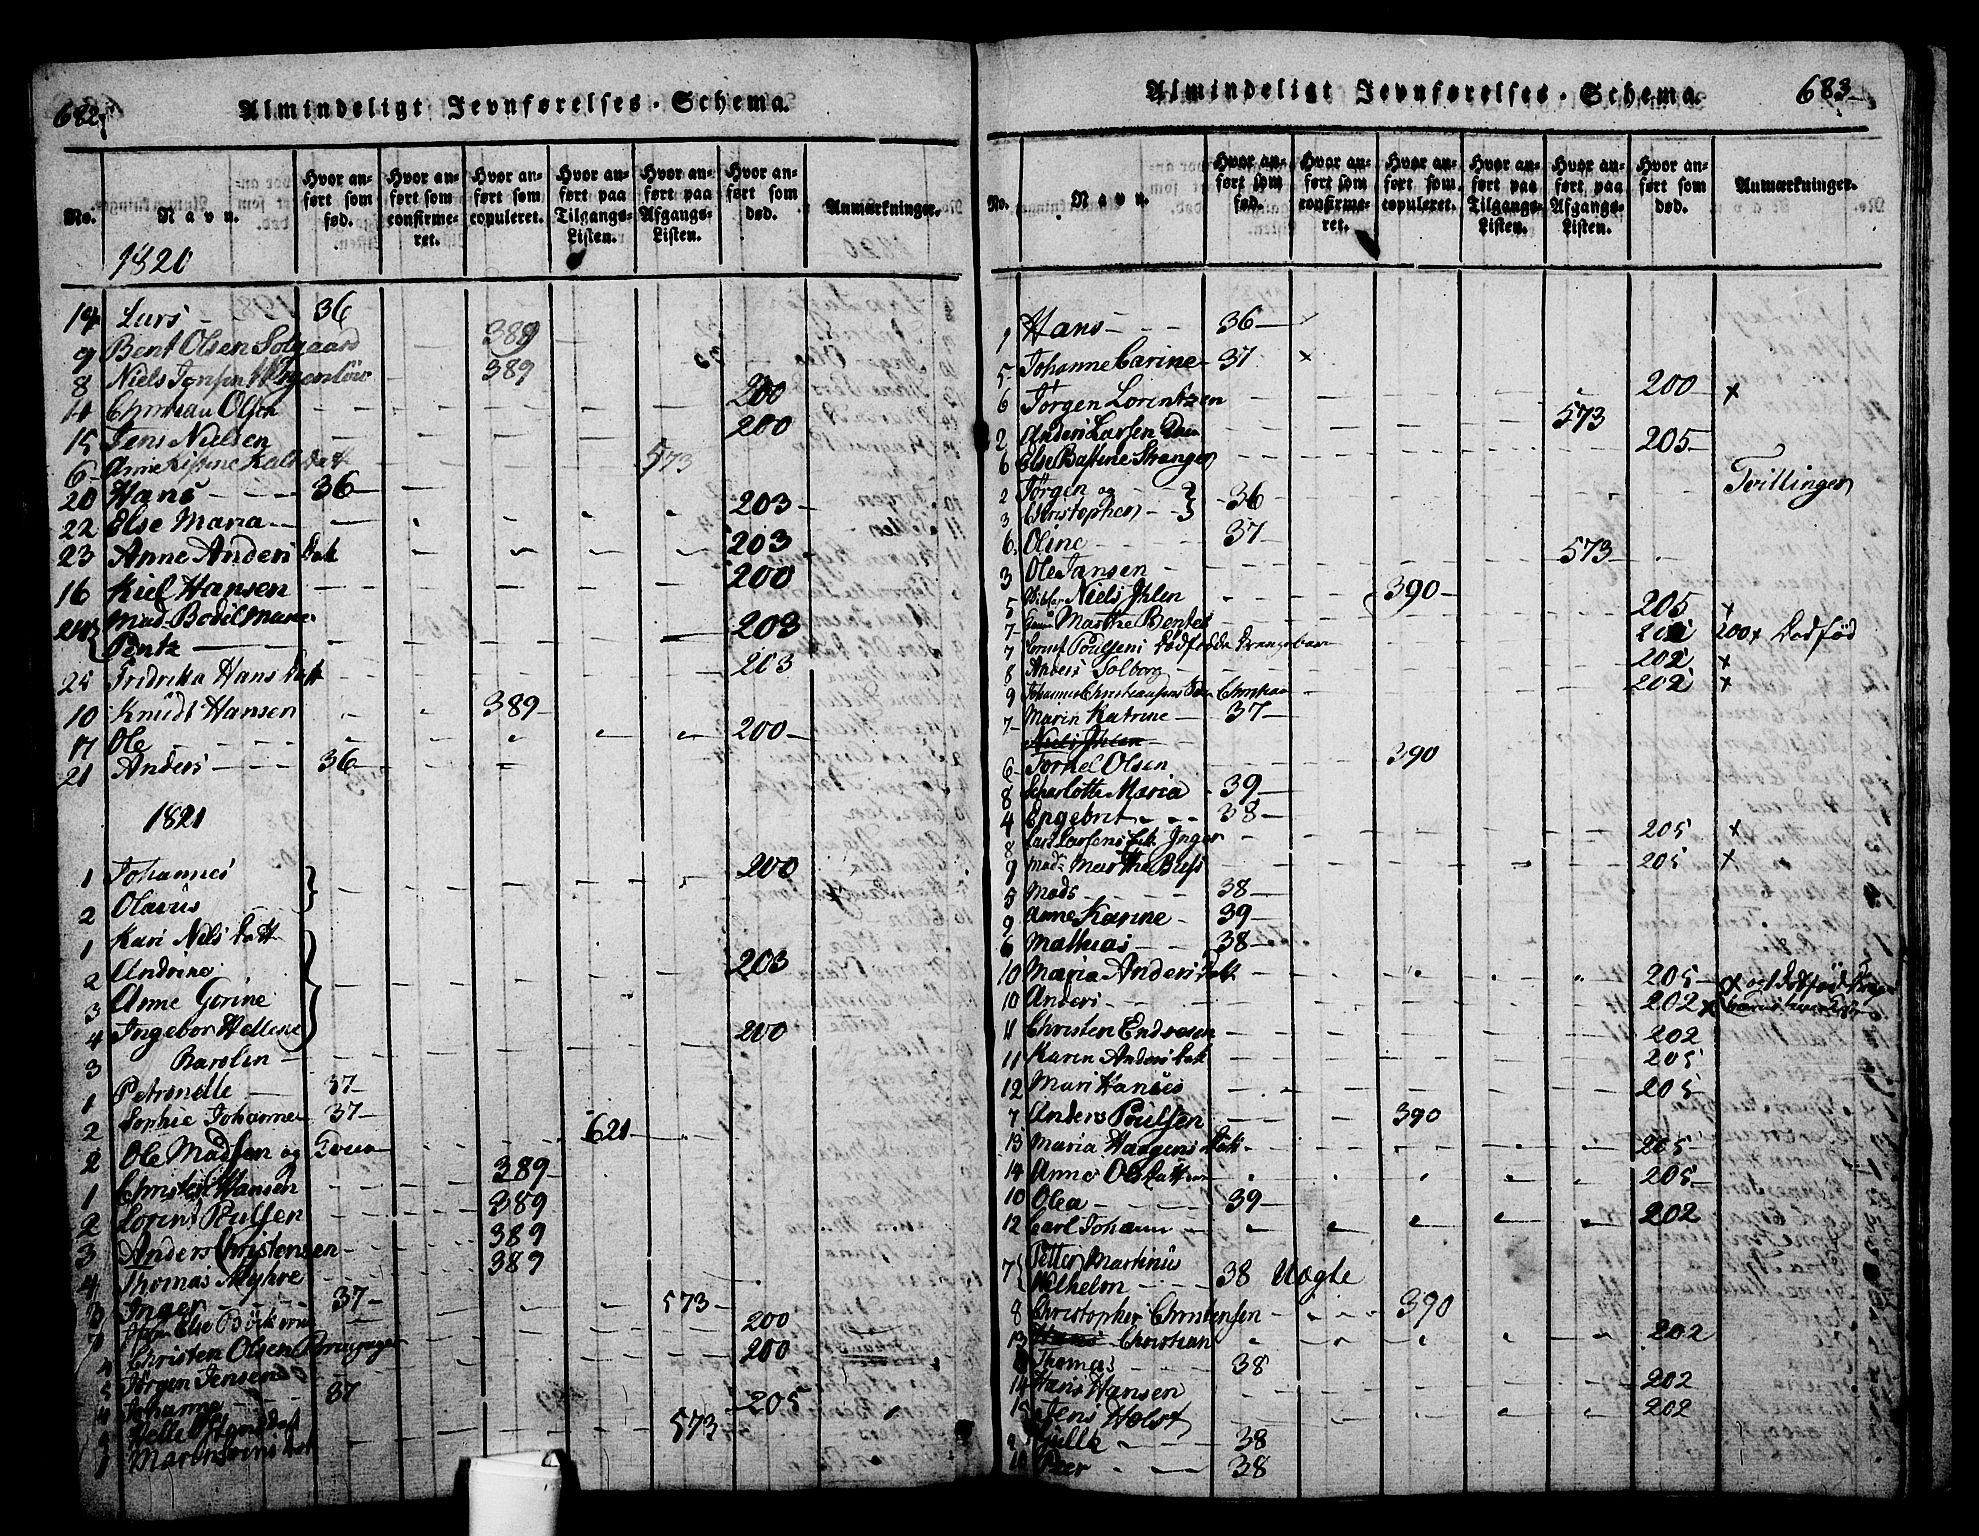 682
Almindeligt Jevnførelses-Schema.
No. Navn. Hvor anført som fød. Hvor anført som confirmeret. Hvor anført som copuleret. Hvor anført paa Tilgangs-Listen. Hvor anført paa Afgangs-Listen. Hvor anført som død. Anmærkninger.
1820
14 Lars 36
9 Bent Olsen Solgaard 389
8 Niels 389
14 Christian Olsen 200
15 Jens Nielsen 200
6 Anne 573
20 Hans 36
22 Else Maria 203
23 Anne Anders Dat 203
16 Kiel Hansen 200
Mad. Bodil Marie
Pentz 203
25 Fridrika Hans Datt 203
10 Knudt Hansen 389
17 Ole 200
21 Anders 36
1821
1 Johannes 200
2 Olavus
1 Kari Niels Datt
2 Andrine 203
3 Anne Gorine
4 Ingebor Hellene 200
3 Barolin
1 Petronelle 37
2 Sophie Johanne 37
2 Ole Madsen og 621
1 Christen Hansen 389
2 Lorent Poulsen 389
3 Anders Christensen 389
4 Thomas Myhre 389
3 Inger 37
Else 573 200
4 Christen Olsen 200
5 Jørgen Jensen
4 Johanne 37 205
573
683
Almindeligt Jevnførelses-Schema.
No. Navn. Hvor anført som fød. Hvor anført som confirmeret. Hvor anført som copuleret. Hvor anført paa Tilgangs-Listen. Hvor anført paa Afgangs-Listen. Hvor anført som død. Anmærkninger.
1 Hans 36
5 Johanne Carine 37 x
6 Jørgen Lorintzen 200 x
2 Anders Larsen 573
6 Else Bastine Stranger 205
2 Jørgen og
3 Christopher 36 Tvillinger
6 Oline 37
3 Ole Jansen 573
5 Niels Ihlen 390
7 Marthe Bentes 205 x
7 Poulsens dødfødde Drengebarn 200x Dødfød
8 Anders Solborg 202 x
9 Johannes Christiansens Søn Christian 202 x
7 Marin Katrine 37
Niels Ihlen
6 Torkel Olsen 390
8 Scharlotte Maria 39
4 Engebret 38
8 Lars Larsens Inger 205 x
9 Mad: Marthe Buss 205 x
5 Mads 38
9 Anne Karine 39
6 Mathias 38
10 Maria Anders Dat 205
10 Anders 202
11 Christen Endresen 202
11 Karen Anders Dat 205
12 Mari Hanses 205
7 Anders Poulsen 390
13 Maria Haagens Dat 205
14 Anne Ols Datter 205
10 Olea 39
12 Carl Johann 202
7 Petter Martinus
Wilhelm 38 Uægte
8 Christopher Christensen 390
13 Christian 202
Thomas 38
14 Hans Hansen 202
15 Jens Holst 202
38
10 Peer 38